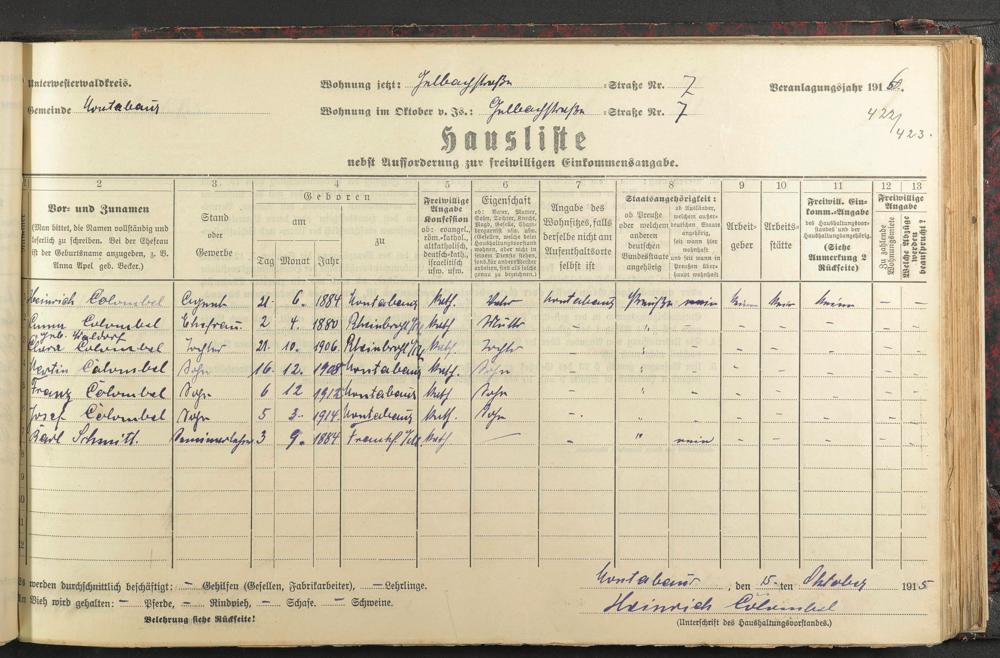 Unterwesterwaldkreis. Wohnung jetzt: Gelbachstraße =Straße Nr. 7 Veranlagungsjahr 1916.
Gemeinde Montabaur Wohnung im Oktober v. Js.: Gelbachstraße =Straße Nr. 7 422/
423.
Hausliste
nebst Aufforderung zur freiwilligen Einkommensangabe.
2 3. 4 5 6 7 8 9 10 11 12 13
Vor- und Zunamen
(Man bittet, die Namen vollständig und
leserlich zu schreiben. Bei der Ehefrau
ist der Geburtsname anzugeben, z. B.
Anna Apel geb. Becker.)
Stand
oder
Gewerbe
Geboren
am zu
Tag Monat Jahr
Freiwillige
Angabe
Konfession
ob: evangel.,
röm.-kathol.,
altkatholisch,
deutsch-kath.,
israelitisch
usw. usw.
Eigenschaft
ob: Vater, Mutter,
Sohn, Tochter, Knecht,
Magd, Geselle, Chamb-
Angabe des
Wohnsitzes, falls
derselbe nicht am
Aufenthaltsorte
selbst ist
Staatsangehörigkeit:
ob Preuße
oder welchem
anderen
deutschen
Bundesstaate
angehörig
ob Ausländer,
welchem außer-
deutschen Staate
angehörig,
seit wann hier
wohnhaft
und seit wann in
Preußen über-
haupt wohnhaft
Arbeit-
geber
Arbeits-
stätte
Freiwill. Ein-
komm.-Angabe
des Haushaltungsvor-
standes und der
Haushaltungsangehörig.
(Siehe
Anmerkung 2
Rückseite)
Freiwillige
Angabe
Zu zahlende
Wohnungsmiete
Welche Abzüge
werden
beansprucht?
Heinrich Colombel Agent 21. 6. 1884 Montabaur kath. Vater Montabaur Preuße nein kein kein keine – –
Colombel Ehefrau 2 4. 1880 Rheinbrohl kath Mutter – " – – – – – –
geb. Waldorf
Clara Colombel Tochter 21. 10. 1906. Rheinbrohl kath. Tochter – " – – – – – –
Martin Colombel Sohn 16. 12. 1908 Montabaur kath. Sohn – " – – – – – –
Franz Colombel Sohn 6 12 1912 Montabaur kath Sohn – " – – – – – –
Josef Colombel Sohn 5 3. 1914. Montabaur kath. Sohn – " – – – – – –
Karl Schmitt. 3 9. 1884 kath. – – " nein – – – – –
werden durchschnittlich beschäftigt: – Gehilfen (Gesellen, Fabrikarbeiter), – Lehrlinge.
Vieh wird gehalten: – Pferde, – Rindvieh, – Schafe. – Schweine.
Belehrung siehe Rückseite!
Montabaur, den 15.ten Oktober 1915
Heinrich Colombel
(Unterschrift des Haushaltungsvorstandes.)